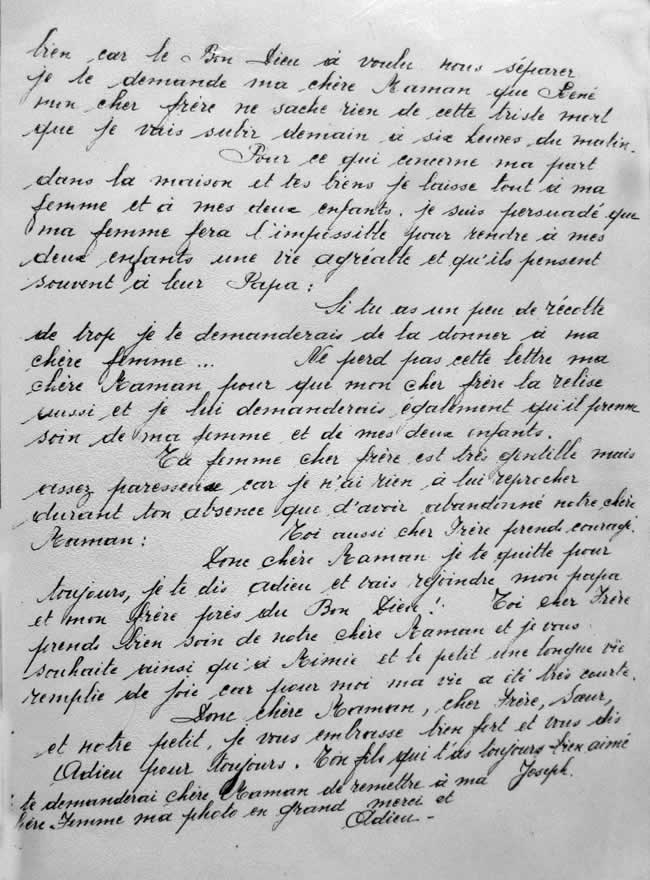 bien car le Bon Dieu à voulu nous séparer
je te demande ma chère Maman que René
mon cher frère ne sache rien de cette triste mort
que je vais subir demain à six heures du matin.
Pour ce qui concerne ma part
dans la maison et tes biens je laisse tout à ma
femme et à mes deux enfants. je suis persuadé que
ma femme fera l'impossible pour rendre à mes
deux enfants une vie agréable et qu'ils pensent
souvent à leur Papa :
Si tu as un peu de récolte
de trop je te demanderais de la donner à ma
chère femme ... Ne perd pas cette lettre ma
chère Maman pour que mon cher frère la relise
aussi et je lui demanderais également qu'il prenne
soin de ma femme et de mes deux enfants.
Ta femme cher frère est très gentille mais
assez paresseuse car je n'ai rien à lui reprocher
durant ton absence que d'avoir abandonné notre chère
Maman : Toi aussi cher Frère prend courage.
Donc chère Maman je te quitte pour
toujours, je te dis Adieu et vais rejoindre mon papa
et mon frère près du Bon Dieu ! Toi cher Frère
prends bien soin de notre chère Maman et je vous
souhaite ainsi qu'à Mimie et le petit une longue vie
remplie de joie car pour moi ma vie a été très courte.
Donc chère Maman, cher Frère, Sœur,
et notre petit, je vous embrasse bien fort et vous dis
Adieu pour toujours. Ton fils qui t'as toujours bien aimé
Joseph.
te demanderai chère Maman de remettre à ma
chère Femme ma photo en grand merci et
Adieu -